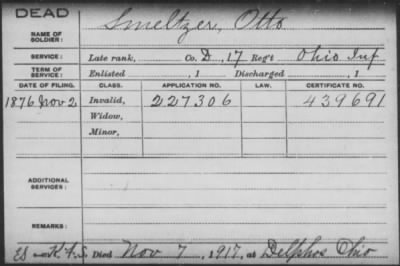 DEAD
NAME OF SOLDIER: Smeltzer, Otto
SERVICE: Late rank, Co. D, 17 Reg't Ohio Inf
TERM OF SERVICE: Enlisted , 1 Discharged , 1
DATE OF FILING. CLASS. APPLICATION NO. LAW. CERTIFICATE NO.
1876 Nov 2 Invalid, 227306 439691
Widow,
Minor,
ADDITIONAL SERVICES:
REMARKS:
Died Nov 7, 1917, at Delphos Ohio